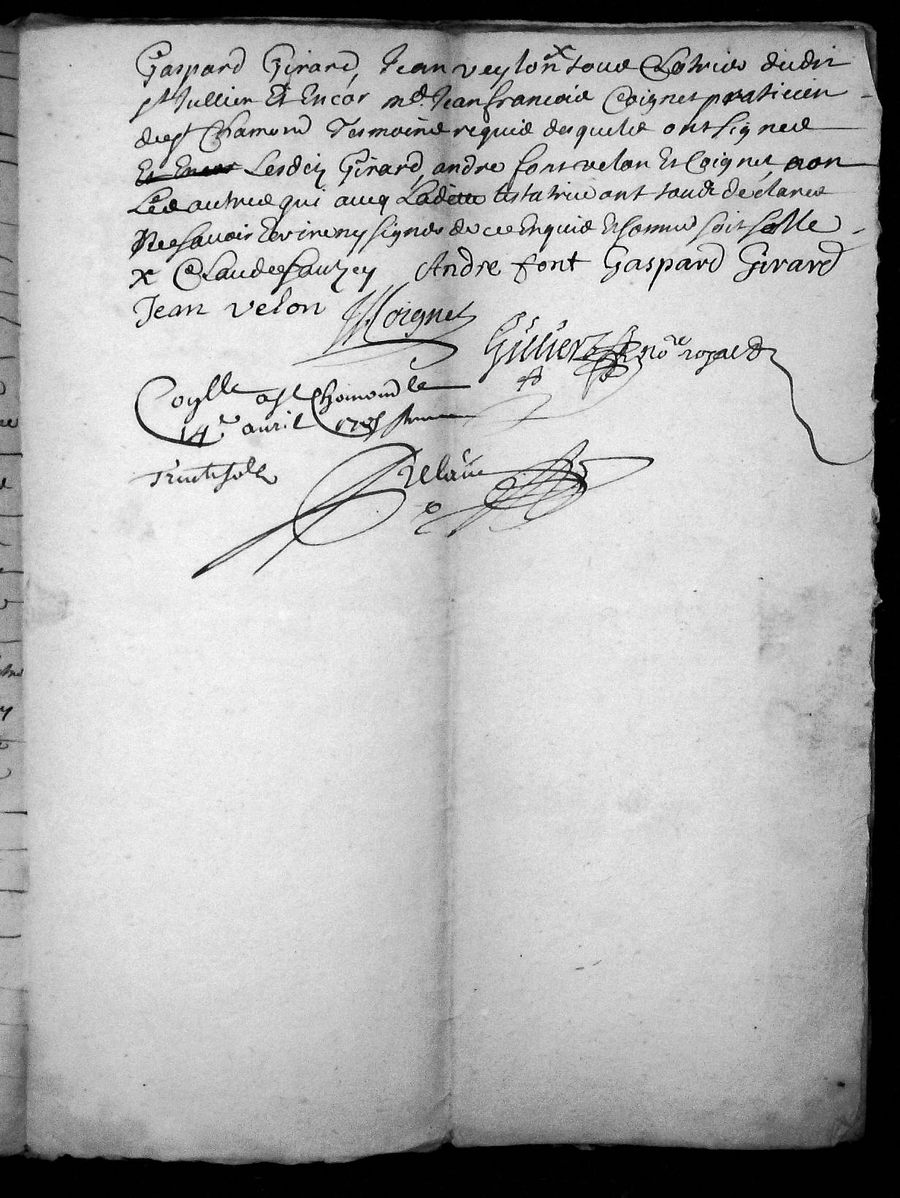 Gaspard Girard, Jean veylon x tous Clotries dudit
st Jullien Et Encor md. Jean francois Coignet praticien
dust Chamond Tesmoins requis desquels ont signes
Et Encor Lesdits Girard, andre font velon Et Coignet, non
Les autres qui avecq Laditte testatrice ont tous declares
Ne savoir Escrire ny signer de ce Enquis Et somme soit selle
x Claude fauzey Andre font Gaspard Girard
Jean velon JfCoignet
Gillier nore. royal
Coylle a st Chamond le
14e avril
Trente sols